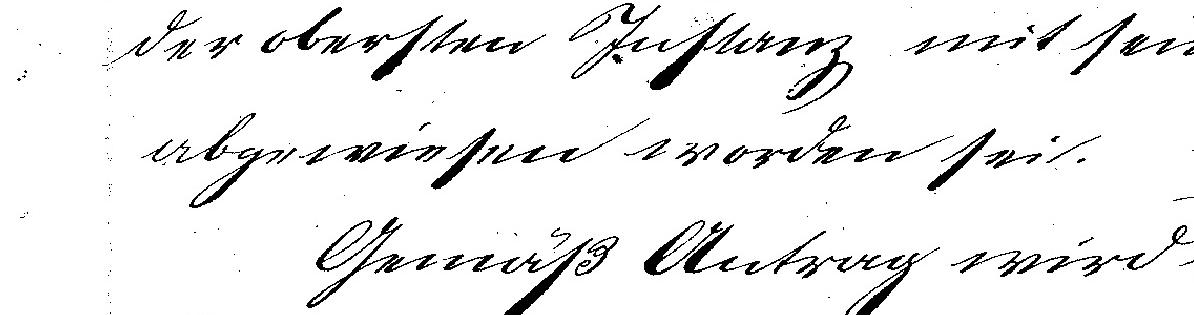 der obersten Instanz mit sein
abgewiesen worden sei.
Gemäß Antrag wird